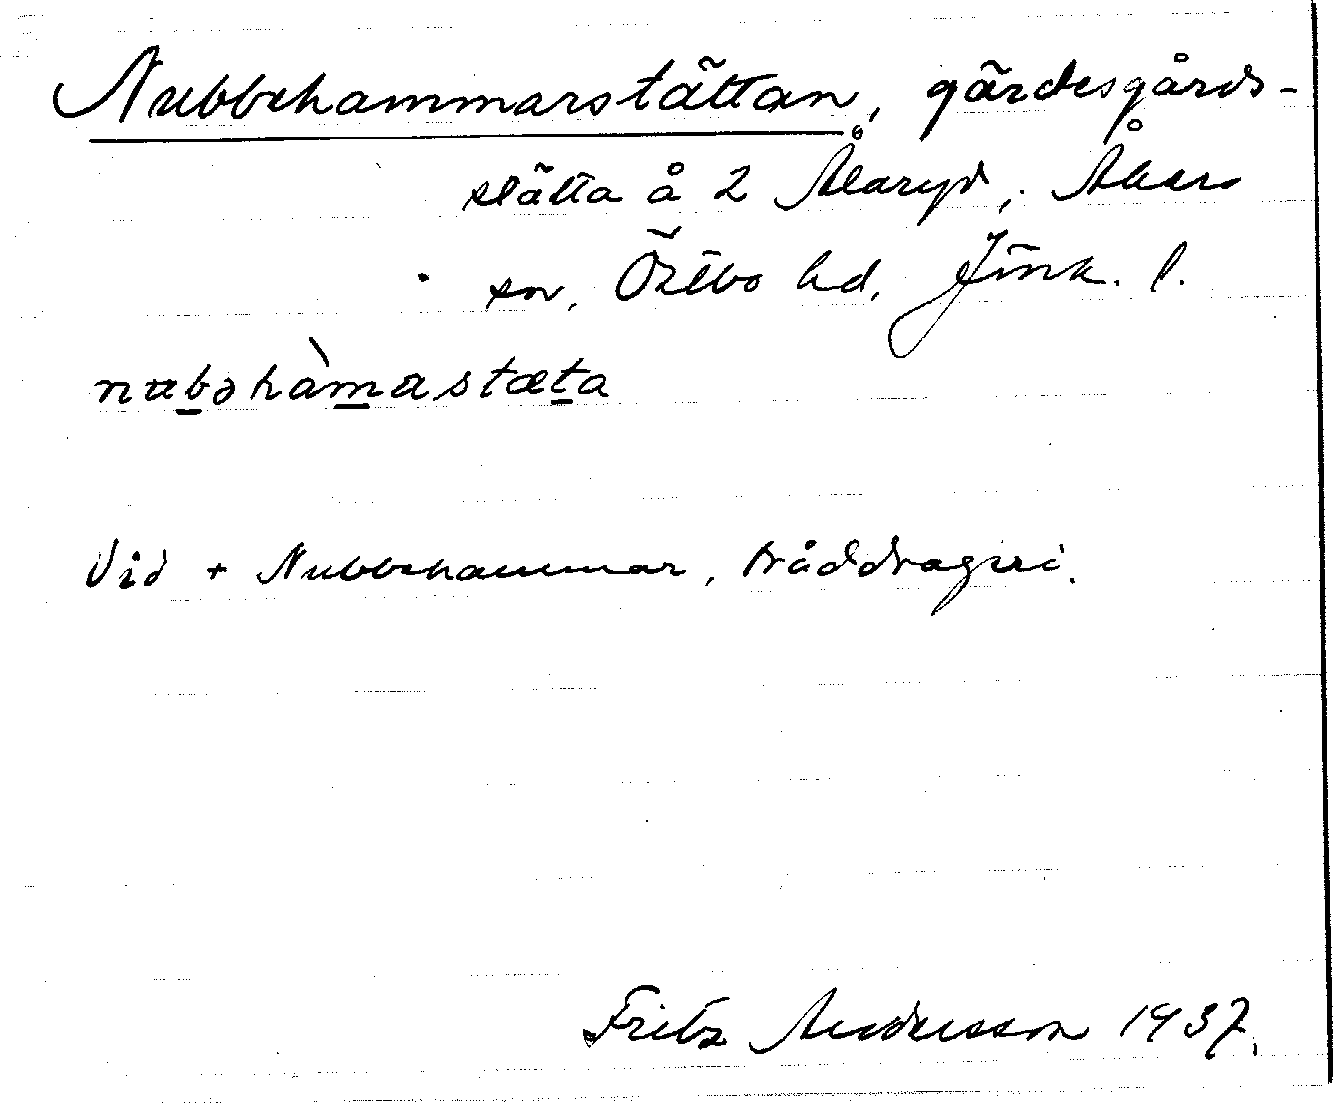 Nubbehammarstättan, gärdesgårds-
stätta å 2 Ålaryd, Åkers
sn, Östbo hd, Jönk. l.
nubəhàmastæta
Vid + Nubbehammar, tråddrageri.
Fritz Andersson 1937.